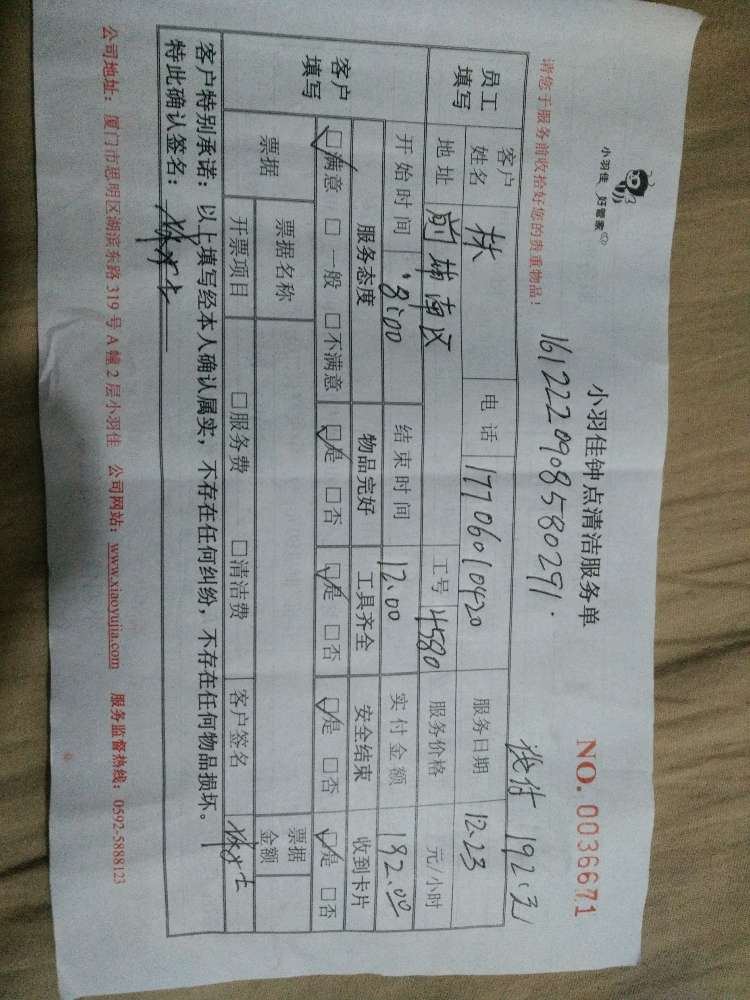 小羽佳 好管家
小羽佳钟点清洁服务单
NO. 0036671
1612220908580291.
192.元
请您于服务前收拾好您的贵重物品!
员工填写 客户姓名 林 电话 17706010420 服务日期 12.23
地址 前埔南区 工号 4580 服务价格 元/小时
开始时间 8:00 结束时间 12:00 实付金额 192.00
客户填写 服务态度 物品完好 工具齐全 安全结束 收到卡片
☑满意 □一般 □不满意 ☑是 □否 ☑是 □否 ☑是 □否 ☑是 □否
票据 票据名称 票据金额
开票项目 □服务费 □清洁费 客户签名
客户特别承诺:以上填写经本人确认属实,不存在任何纠纷,不存在任何物品损坏。
特此确认签名:
公司地址:厦门市思明区湖滨东路319号A幢2层小羽佳 公司网站:www.xiaoyujia.com 服务监督热线:0592-5888123